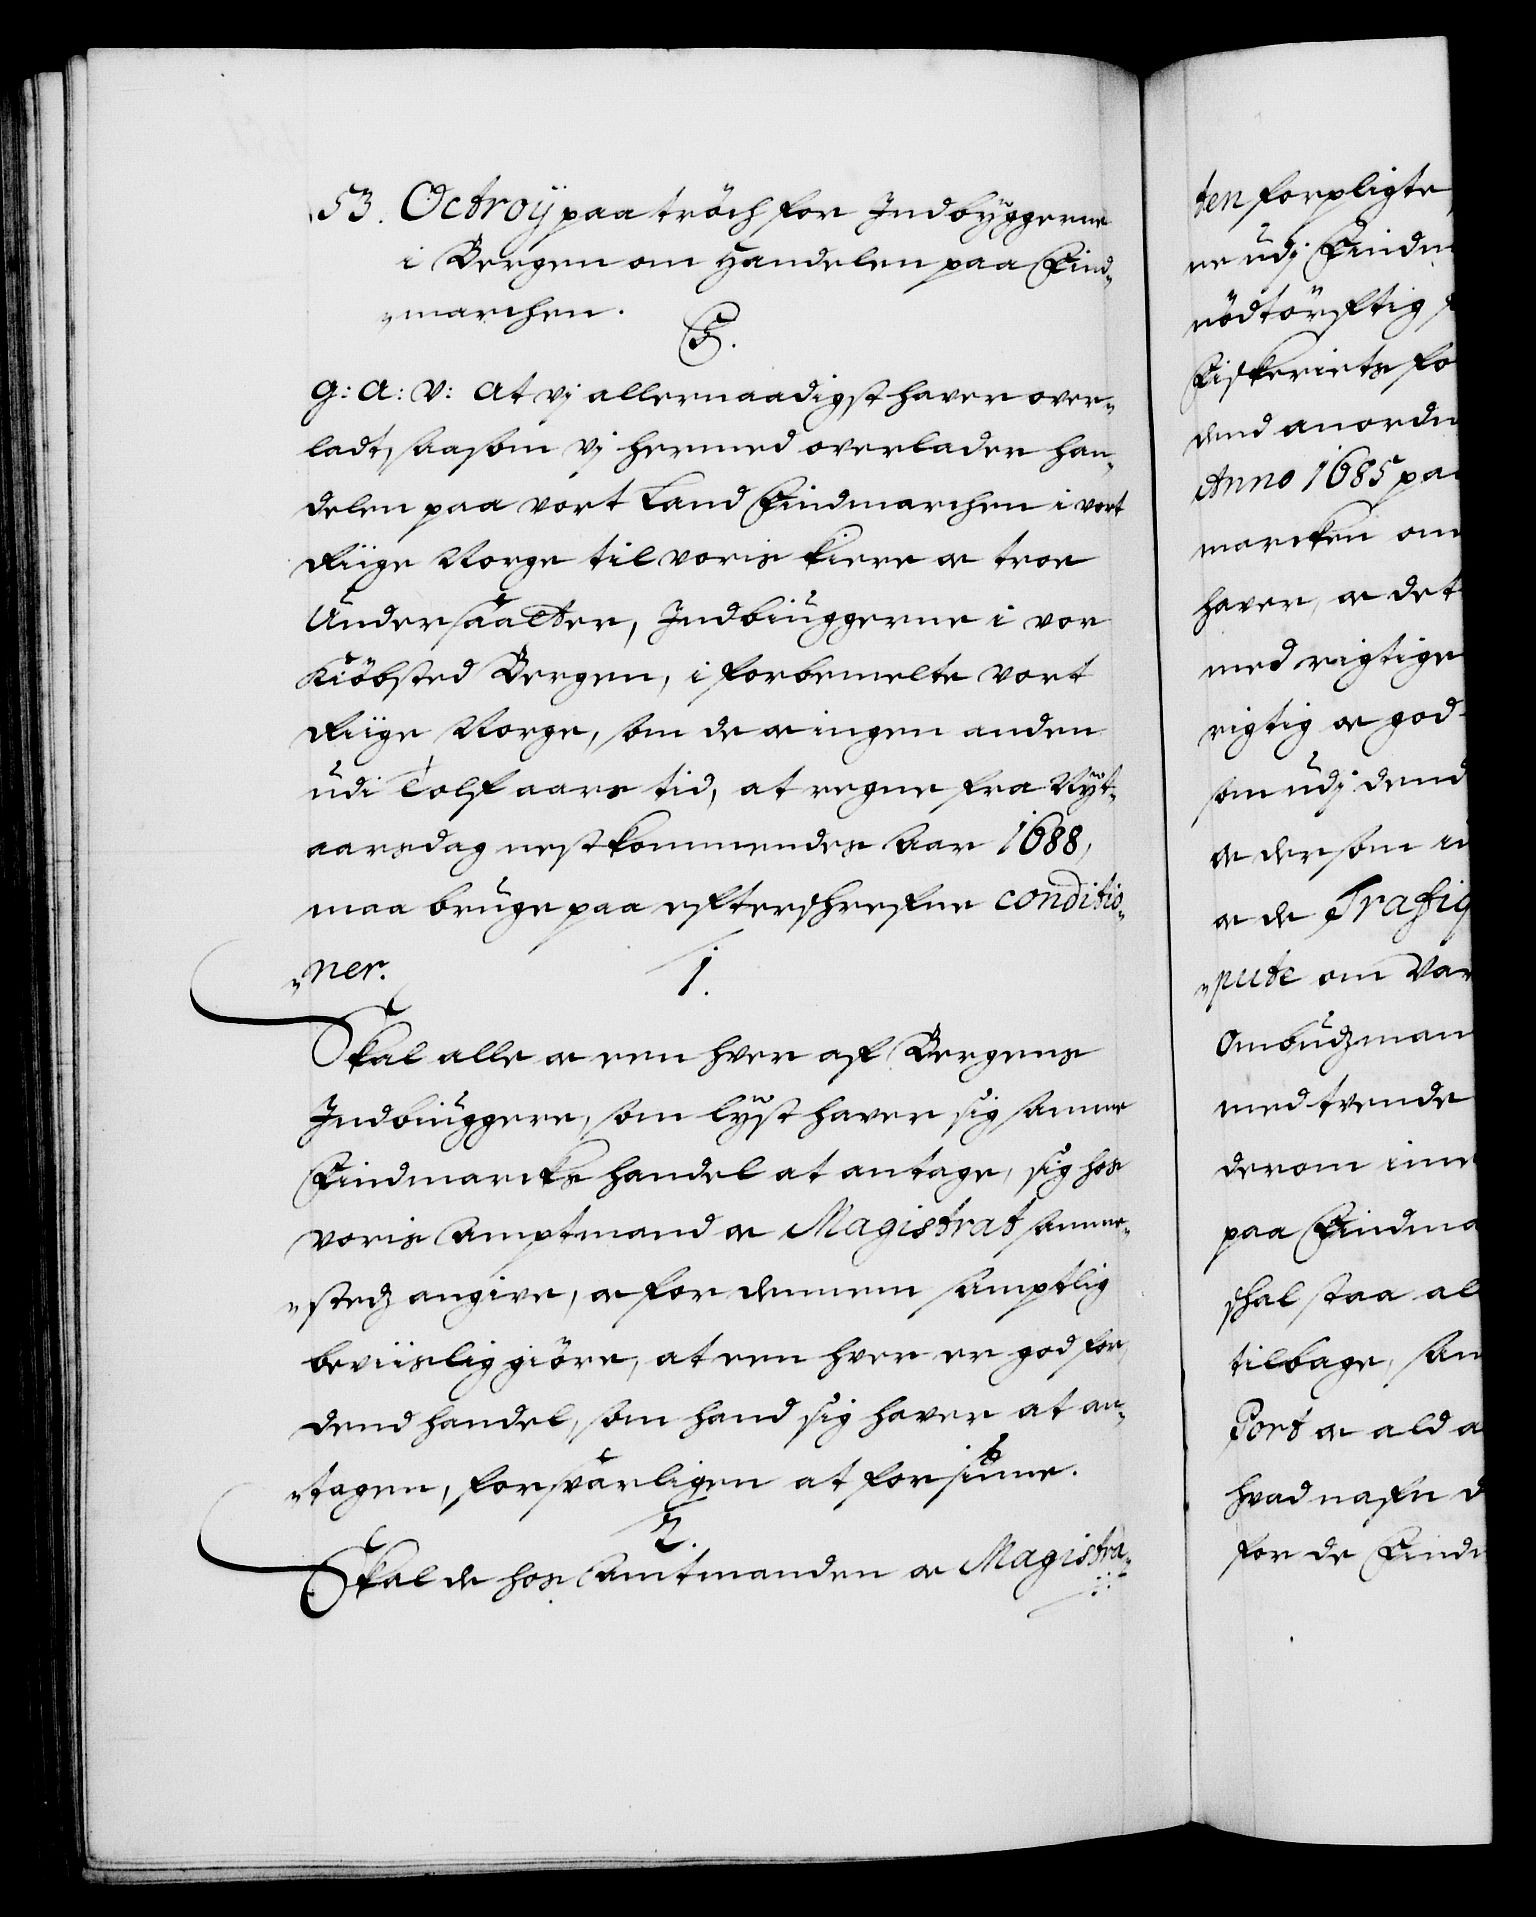 53. Octroÿ paa tröch for Indbÿggerne
i Bergen om Handelen paa Find-
-marchen.
C5.
G: A: V: At vj allernaadigst haver over-
ladt, saasom vj hermed overlader han-
delen paa vort Land Findmarchen i vort
Riige Norge til voris kiere oc troe
Undersaatter, Indbiuggerne i vor
Kiöbsted Bergen, i forbemelte vort
Riige Norge, som de oc ingen anden
udi Tolf aars tid, at regne fra Nÿt-
aarsdag nestkommendes Aar 1688,
maa bruge paa efterschrefne conditio-
-ner.
1.
Skal alle oc een hver af Bergens
Indbiuggere, som lÿst haver sig samme
Findmarcks handel at antage, sig hos
voris Amptmand oc Magistrat samme-
-stedz angive, oc for dennem samptlig
beviislig giöre, at een hver er god for
dend handel, som hand sig haver at an-
-tagen, forsvarligen at forsiune.
2.
Skal de hos Amtmanden oc Magistra-
ten forpligte
re udj Findm
nödtörftig
Fiskeriets fo
dend anordn
Anno 1685 paa
marcken om
haver, oc det
med rigtige
rigtig oc god
som udj dend
oc dersom in
oc de Trafiq
-pute om Var
Ombudzman
med tvende
derom ime
paa Findma
schal staa al
tilbage, sam
Port oc ald a
hvad nafn d
for de Findm